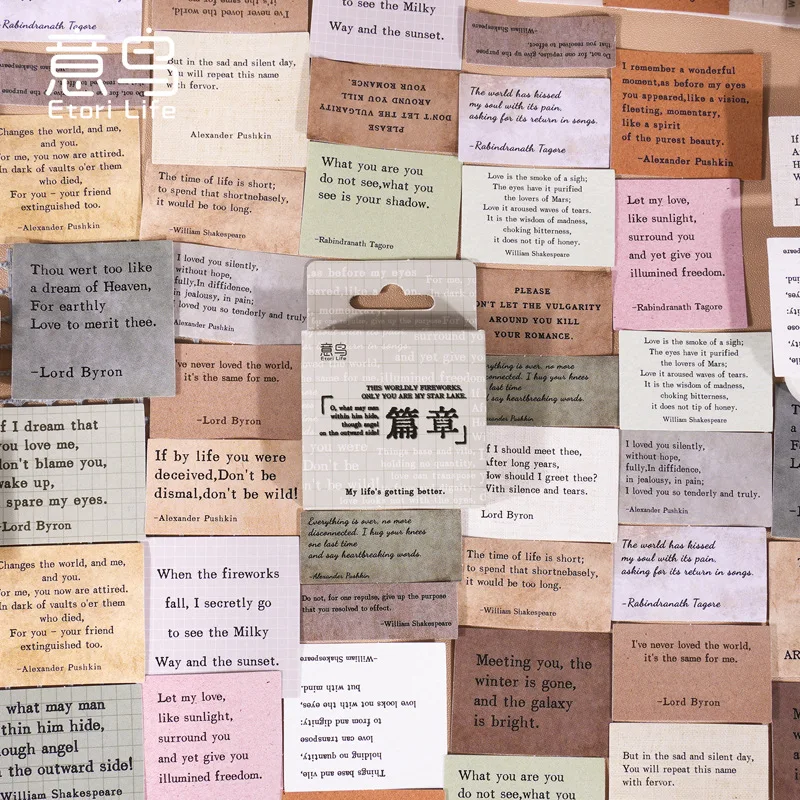 意鸟
Etori Life
-Rabindranath Tagore
I've never loved the world,
it's the same for me.
to see the Milky
Way and the sunset.
-William Shakespeare
Do not, for one repulse, give up the purpose
that you resolved to effect.
But in the sad and silent day,
You will repeat this name
with fervor.
Alexander Pushkin
PLEASE
DON'T LET THE VULGARITY
AROUND YOU KILL
YOUR ROMANCE.
The world has kissed
my soul with its pain,
asking for its return in songs.
-Rabindranath Tagore
I remember a wonderful
moment,as before my eyes
you appeared,like a vision,
fleeting, momentary,
like a spirit
of the purest beauty.
-Alexander Pushkin
Changes the world, and me,
and you.
For me, you now are attired.
In dark of vaults o'er them
who died,
For you - your friend
extinguished too.
-Alexander Pushkin
The time of life is short;
to spend that shortnebasely,
it would be too long.
-William Shakespeare
What you are you
do not see,what you
see is your shadow.
-Rabindranath Tagore
Love is the smoke of a sigh;
The eyes have it purified
the lovers of Mars;
Love it aroused waves of tears.
It is the wisdom of madness,
choking bitterness,
it does not tip of honey.
William Shakespeare
Let my love,
like sunlight,
surround you
and yet give you
illumined freedom.
-Rabindranath Tagore
Thou wert too like
a dream of Heaven,
For earthly
Love to merit thee.
-Lord Byron
I loved you silently,
without hope,
fully,In diffidence,
in jealousy, in pain;
I loved you so tenderly and truly
Alexander Pushkin
PLEASE
ON'T LET THE VULGARITY
AROUND YOU KILL
YOUR ROMANCE.
意鸟
Etori Life
THIS WORLDLY FIREWORKS,
ONLY YOU ARE MY STAR LAKE.
O, what may man
within him hide,
though angel
on the outward side!
「篇章」
My life's getting better.
I've never loved the world,
it's the same for me.
-Lord Byron
erything is over, no more
connected. I hug your knees
last time
d say heartbreaking words.
Alexander Pushkin
Love is the smoke of a sigh;
The eyes have it purified
the lovers of Mars;
Love it aroused waves of tears.
It is the wisdom of madness,
choking bitterness,
it does not tip of honey.
William Shakespeare
If I dream that
you love me,
don't blame you,
wake up,
spare my eyes.
-Lord Byron
If by life you were
deceived,Don't be
dismal,don't be wild!
-Alexander Pushkin
If I should meet thee,
After long years,
How should I greet thee?
With silence and tears.
Lord Byron
I loved you silently,
without hope,
fully,In diffidence,
in jealousy, in pain;
I loved you so tenderly and truly.
-Alexander Pushkin
Everything is over, no more
disconnected. I hug your knees
one last time
and say heartbreaking words.
-Alexander Pushkin
Changes the world, and me,
and you.
For me, you now are attired.
In dark of vaults o'er them
who died,
For you - your friend
extinguished too.
-Alexander Pushkin
When the fireworks
fall, I secretly go
to see the Milky
Way and the sunset.
Do not, for one repulse, give up the purpose
that you resolved to effect.
-William Shakespeare
The time of life is short;
to spend that shortnebasely,
it would be too long.
-William Shakespeare
The world has kissed
my soul with its pain,
asking for its return in songs.
-Rabindranath Tagore
what may man
thin him hide,
ough angel
the outward side!
William Shakespeare
Let my love,
like sunlight,
surround you
and yet give you
illumined freedom.
Things base and vile,
holding no quantity,
love can transpose
to from and dignity:
love looks not with the eyes,
but with mind.
-William Shakespeare
Meeting you, the
winter is gone,
and the galaxy
is bright.
I've never loved the world,
it's the same for me.
-Lord Byron
What you are you
do not see,what you
But in the sad and silent day,
You will repeat this name
with fervor.